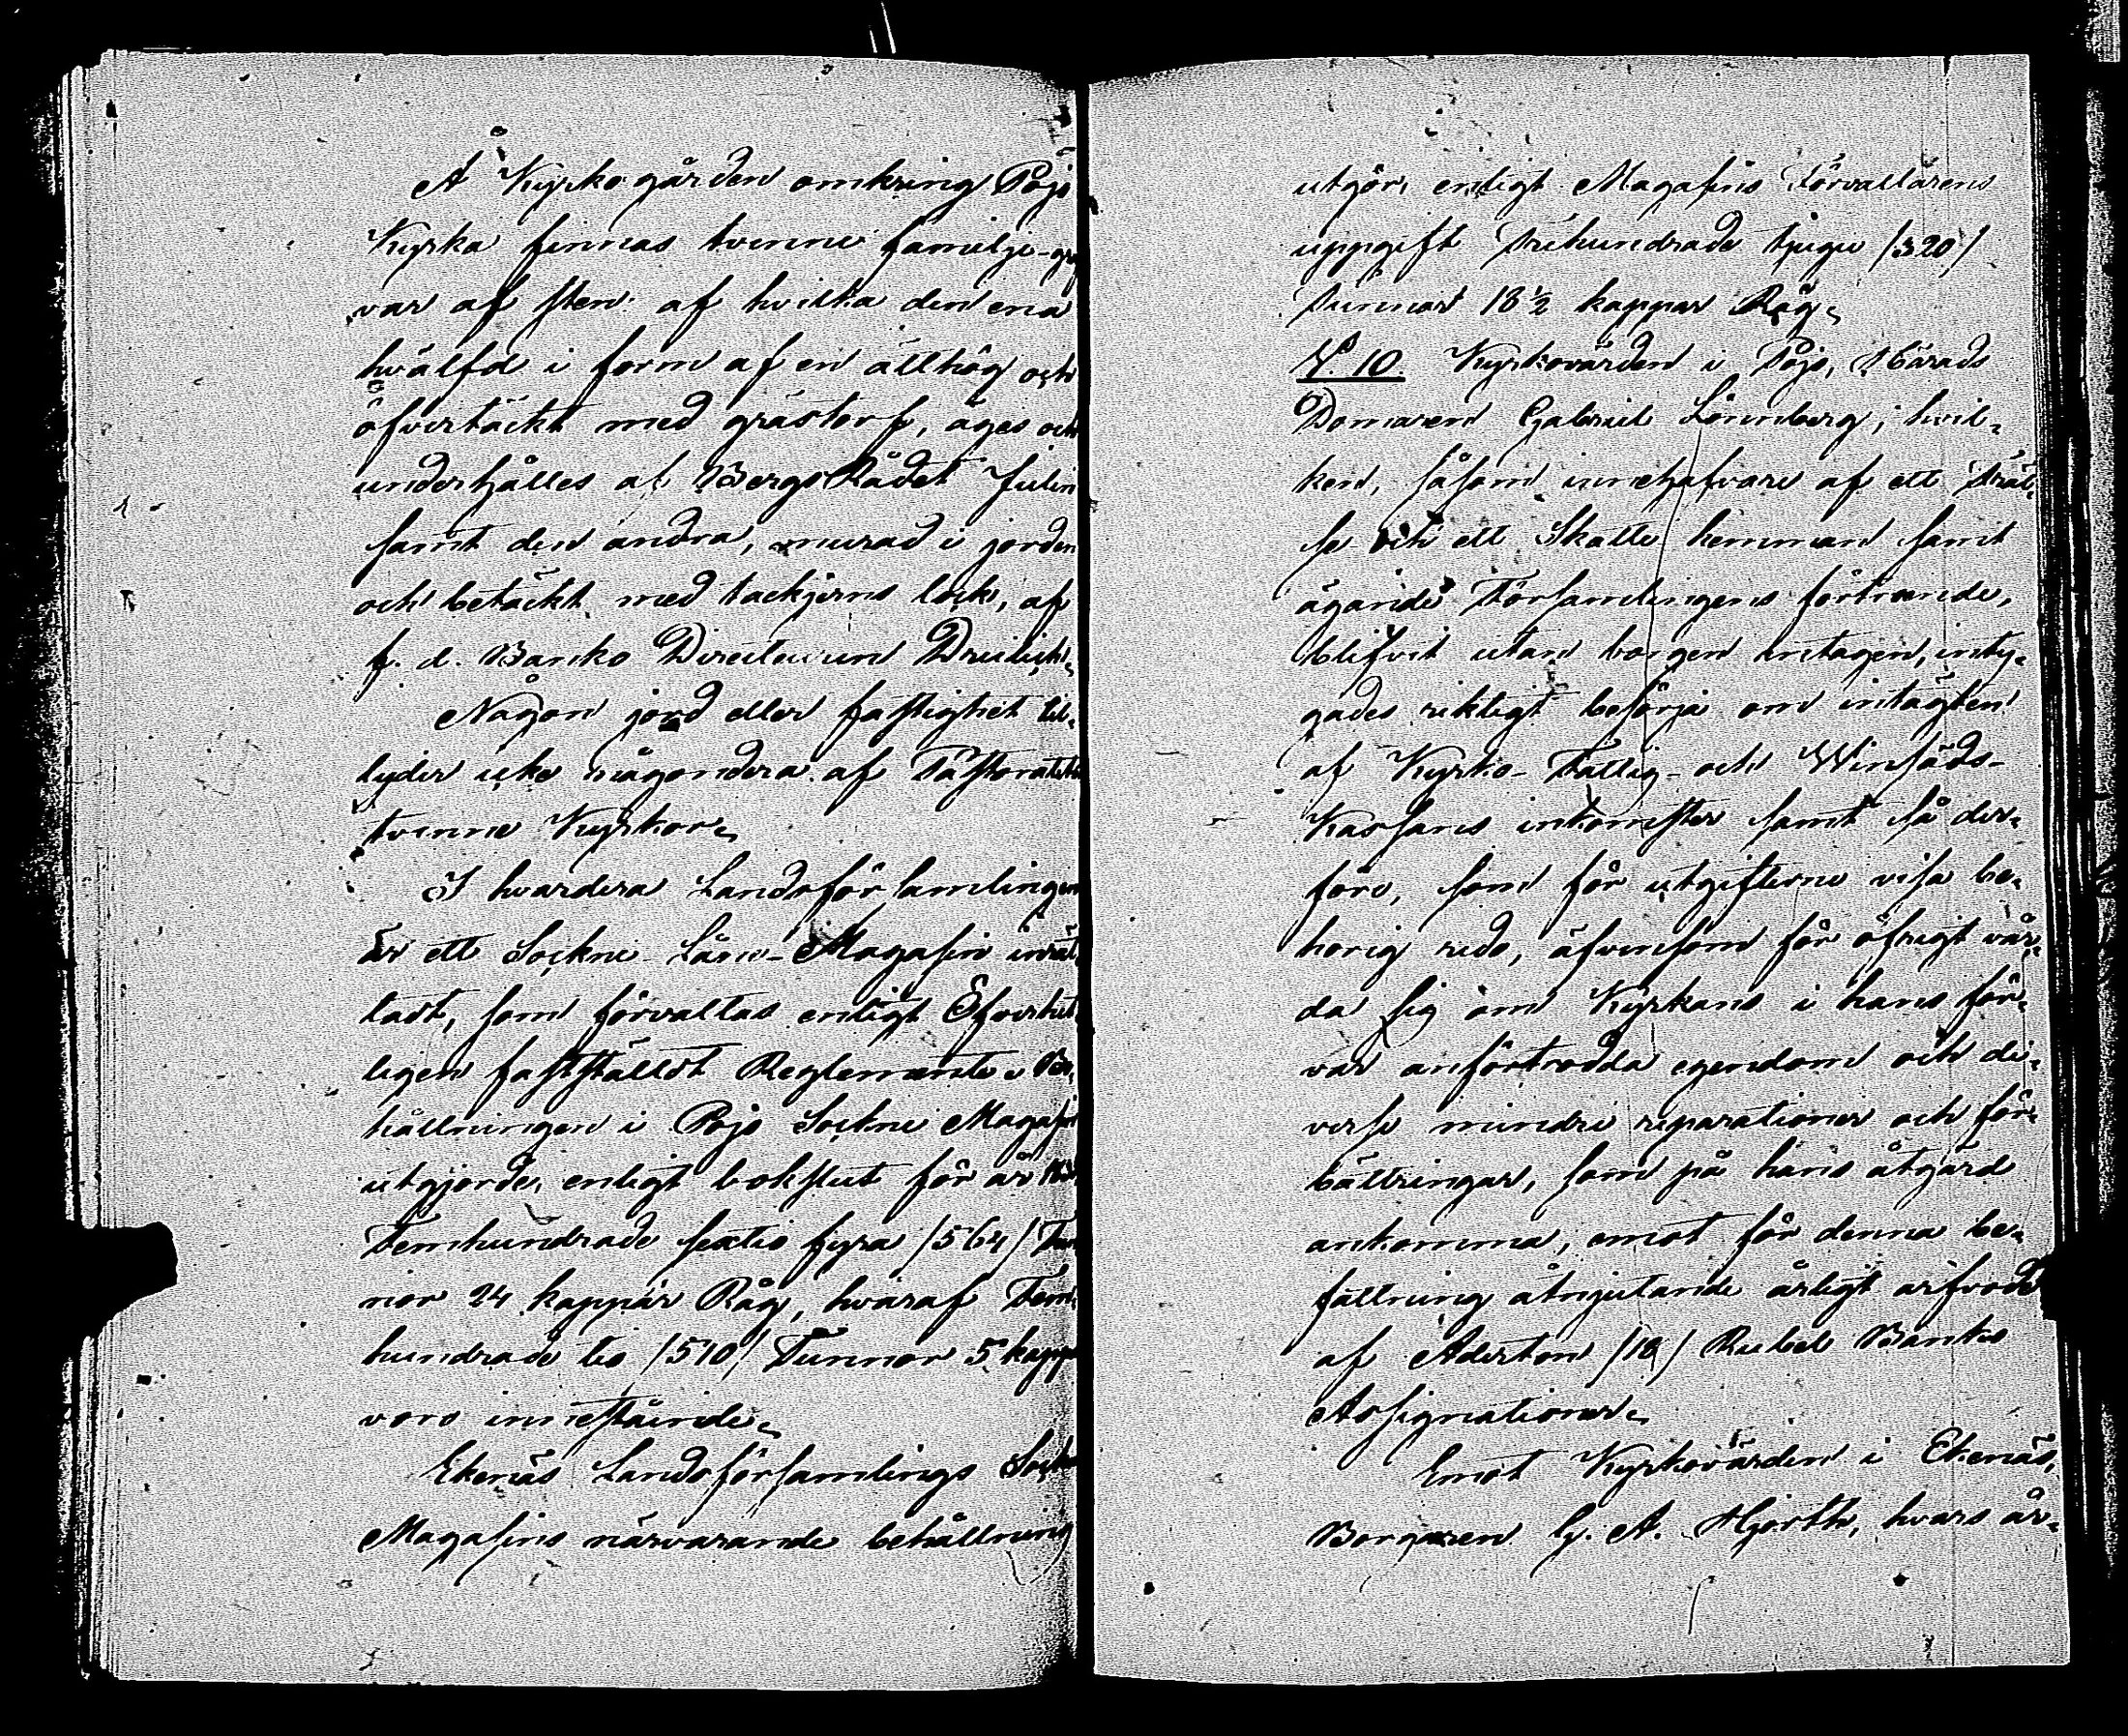 Å Kyrkogården omkring Pojo
Kyrka finnas tvenne familje-graf
var af sten: af hvilka den ena
hvälfd i form af en ätthög och
öfvertäckt med grästorf, äges och
underhålles af BergsRådet Julin
samt den andra, murad i jorden
och betäckt med tackjerns lock, af
f. d. Banko Directeuren
Någon jord eller fastighet til-
lyder icke någondera af Pastoratets
tvenne Kyrkor.
I hvardera Landsförsamlingen
är ett Sockne-Låne-Magasin inrät
tadt, som förvaltas enligt Öfverhet
ligen fastställdt Reglemente. Be-
hållningen i Pojo Sockne Magasin
utgjorde, enligt bokslut för år
Femhundrade sextio fyra /564/ Tun
nor 24 kappar Råg, hvaraf Fem-
hundrade tio /510/ Tunnor 5 kappar
voro innestående.
Ekenäs Landsförsamlings Sockne
Magasins närvarande behållning
utgör, enligt Magasins Förvaltarens
uppgift Trehundrade tjugu /320/
Tunnor 18 1/2 kappar Råg.
N:o 10. Kyrkovärden i Pojo, Härads
Domaren Gabriel Lönnberg; hvil-
ken, såsom innehafvare af ett Fräl-
se och ett Skatte hemman samt
ägande Församlingens förtroende,
blifvit utan borgen antagen, inty-
gades riktigt besörja om intägten
af Kyrko- Fattig- och Winsäds-
Kassans inkomster samt så der-
före, som för utgifterne visa be-
horig redo, äfvensom för öfrigt vår-
da sig om Kyrkans i hans för-
var anförtrodda egendom och di-
verse mindre reparationer och för-
bättringar, som på hans åtgärd
ankomma, emot för denna be-
fattning åtnjutande årligt arfvode
af Aderton /18/ Rubel Banko
Assignationer.
Emot Kyrkovärden i Ekenäs,
Borgaren G. A. Hjorth, hvars år-